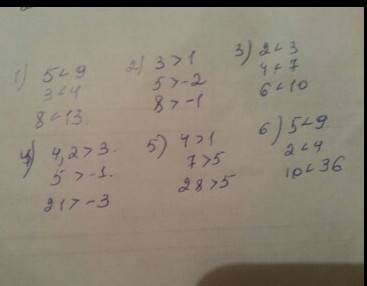 1) 5<9
3<4
8<13
2) 3>1
5>-2
8>-1
3) 2<3
4<7
6<10
4) 4,2>3.
5>-1.
21>-3
5) 4>1
7>5
28>5
6) 5<9
2<4
10<36